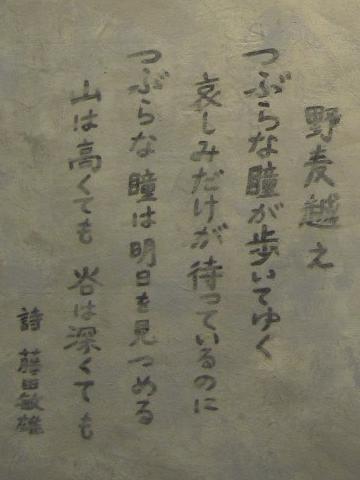 野麦越え
つぶらな瞳が歩いてゆく
哀しみだけが待っているのに
つぶらな瞳は明日を見つめる
山は高くても 谷は深くても
詩 藤田敏雄